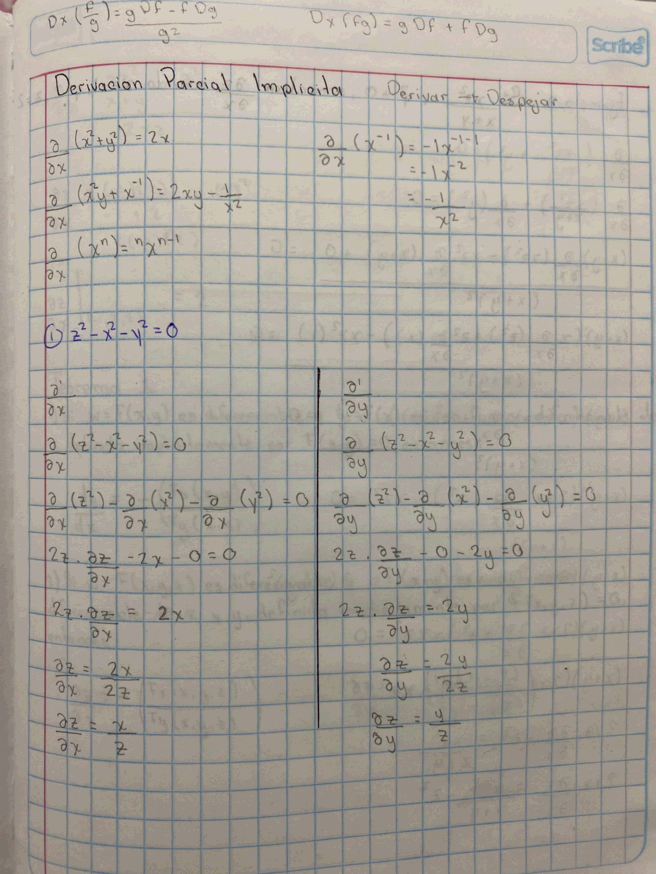 Dx (f/g) = (g Df - f Dg)/g²
Dx (fg) = g Df + f Dg
Scribe
Derivacion Parcial Implicita
Derivar → Despejar
∂/∂x (x²+y²) = 2x
∂/∂x (x²y + x⁻¹) = 2xy - 1/x²
∂/∂x (xⁿ) = nxⁿ⁻¹
∂/∂x (x⁻¹) = -1x⁻¹⁻¹
= -1x⁻²
= -1/x²
① z² - x² - y² = 0
∂'/∂x
∂/∂x (z² - x² - y²) = 0
∂/∂x (z²) - ∂/∂x (x²) - ∂/∂x (y²) = 0
2z · ∂z/∂x - 2x - 0 = 0
2z · ∂z/∂x = 2x
∂z/∂x = 2x/2z
∂z/∂x = x/z
∂'/∂y
∂/∂y (z² - x² - y²) = 0
∂/∂y (z²) - ∂/∂y (x²) - ∂/∂y (y²) = 0
2z · ∂z/∂y - 0 - 2y = 0
2z · ∂z/∂y = 2y
∂z/∂y = 2y/2z
∂z/∂y = y/z